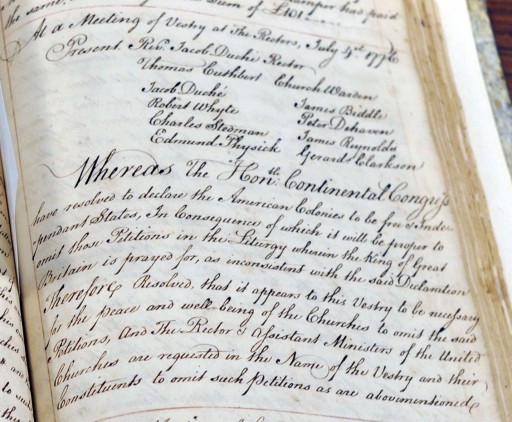 the same,
Sum of £101
At a Meeting of Vestry at The Rectors, July 4th 1776
Present. Rev. Jacob Duché Rector
Thomas Cuthbert Church Warden
Jacob Duché James Biddle
Robert Whyte Peter Dehaven
Charles Stedman James Reynolds
Edmund Physick Gerard Clarkson
Whereas The Honble. Continental Congress
have resolved to declare the American Colonies to be free & Inde-
pendant States, In Consequence of which it will be proper to
omit those Petitions in the Liturgy wherein the King of Great
Britain is prayed for, as inconsistent with the said Declaration
Therefore Resolved, that it appears to this Vestry to be necessary
for the peace and well-being of the Churches to omit the said
Petitions, And The Rector & Assistant Ministers of the United
Churches are requested in the Name of the Vestry and their
Constituents to omit such Petitions as are abovementioned